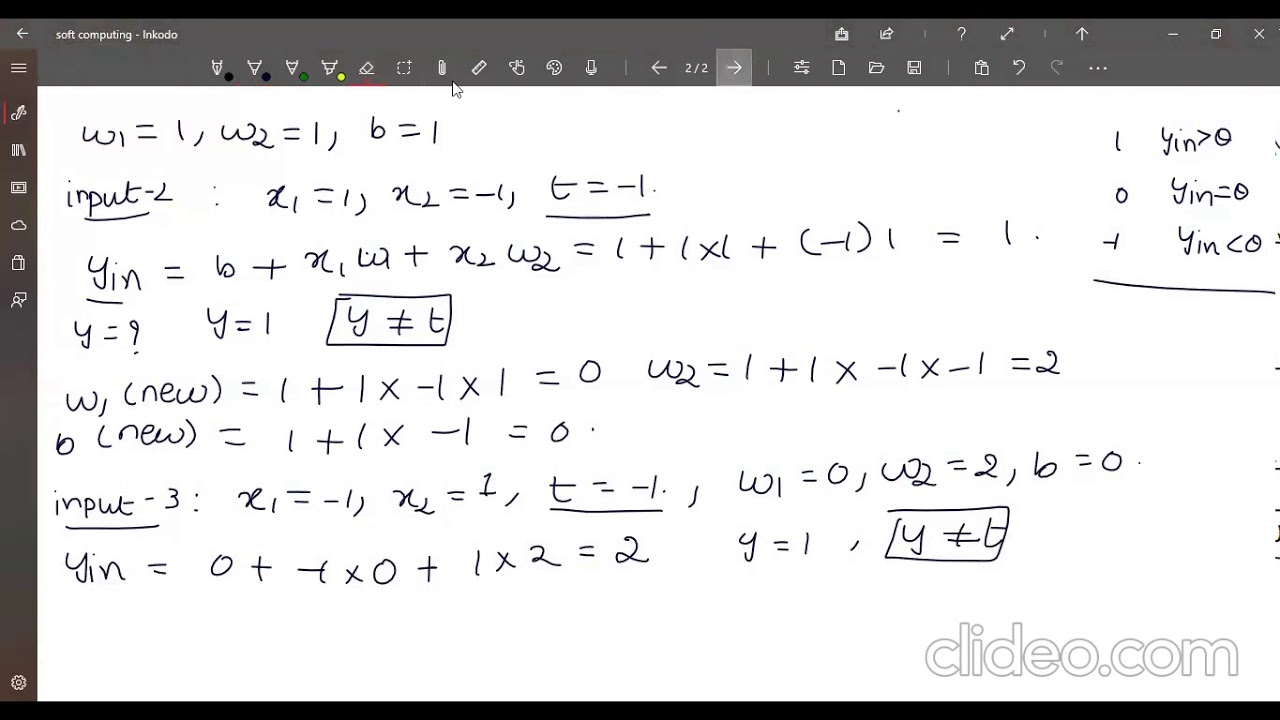 soft computing - Inkodo
2/2
w1 = 1, w2 = 1, b = 1
input-2 : x1 = 1, x2 = -1, t = -1.
yin = b + x1 w1 + x2 w2 = 1 + 1×1 + (-1) 1 = 1.
y = ? y = 1 y ≠ t
w1 (new) = 1 + 1 × -1 × 1 = 0 w2 = 1 + 1 × -1 × -1 = 2
b (new) = 1 + 1 × -1 = 0.
input-3 : x1 = -1, x2 = 1, t = -1., w1 = 0, w2 = 2, b = 0.
yin = 0 + -1 × 0 + 1 × 2 = 2 y = 1, y ≠ t
1 yin>θ
0 yin=θ
-1 yin<θ
clideo.com